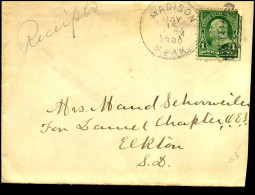 Receipts
MADISON
MAY
1900
Mrs. Maud Schonweiler
For Laurel Chapter OES
Elkton
S.D.